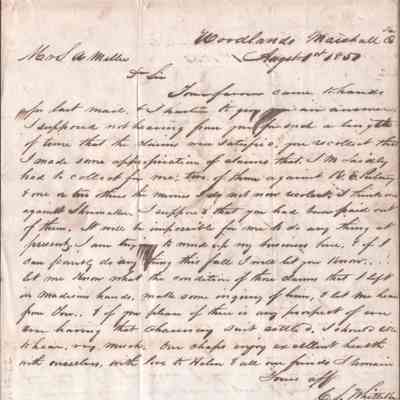 Woodlands Marshall Co
August 1st 1850
Mr S A Miller
D Sir
Your favour came to hand
by last mail, & I hasten to give you an answer
I supposed not hearing from you for such a length
of time that the claims were satisfied, you recollect that
I made some appropriation of claims that J M Liddly
had to collect for me, two of them against R. C.
& one or two others the names I do not now recolect, I think one
against Shumaker. I suppose that you had been paid out
of them, It will be impossible for me to do any thing at
present, I am trying to wind up my business here, & if I
can possibly do any thing this fall I will let you know.
let me know what the condition of those claims that I left
in Madison hands, make some inquiry of him, & let me hear
from you, & if you please if there is any prospect of our
ever having that chancery suit settled, I should like
to hear, very much. Our chaps enjoy excellent health
with ourselves, with love to Helen & all our friends I remain
Yours aff